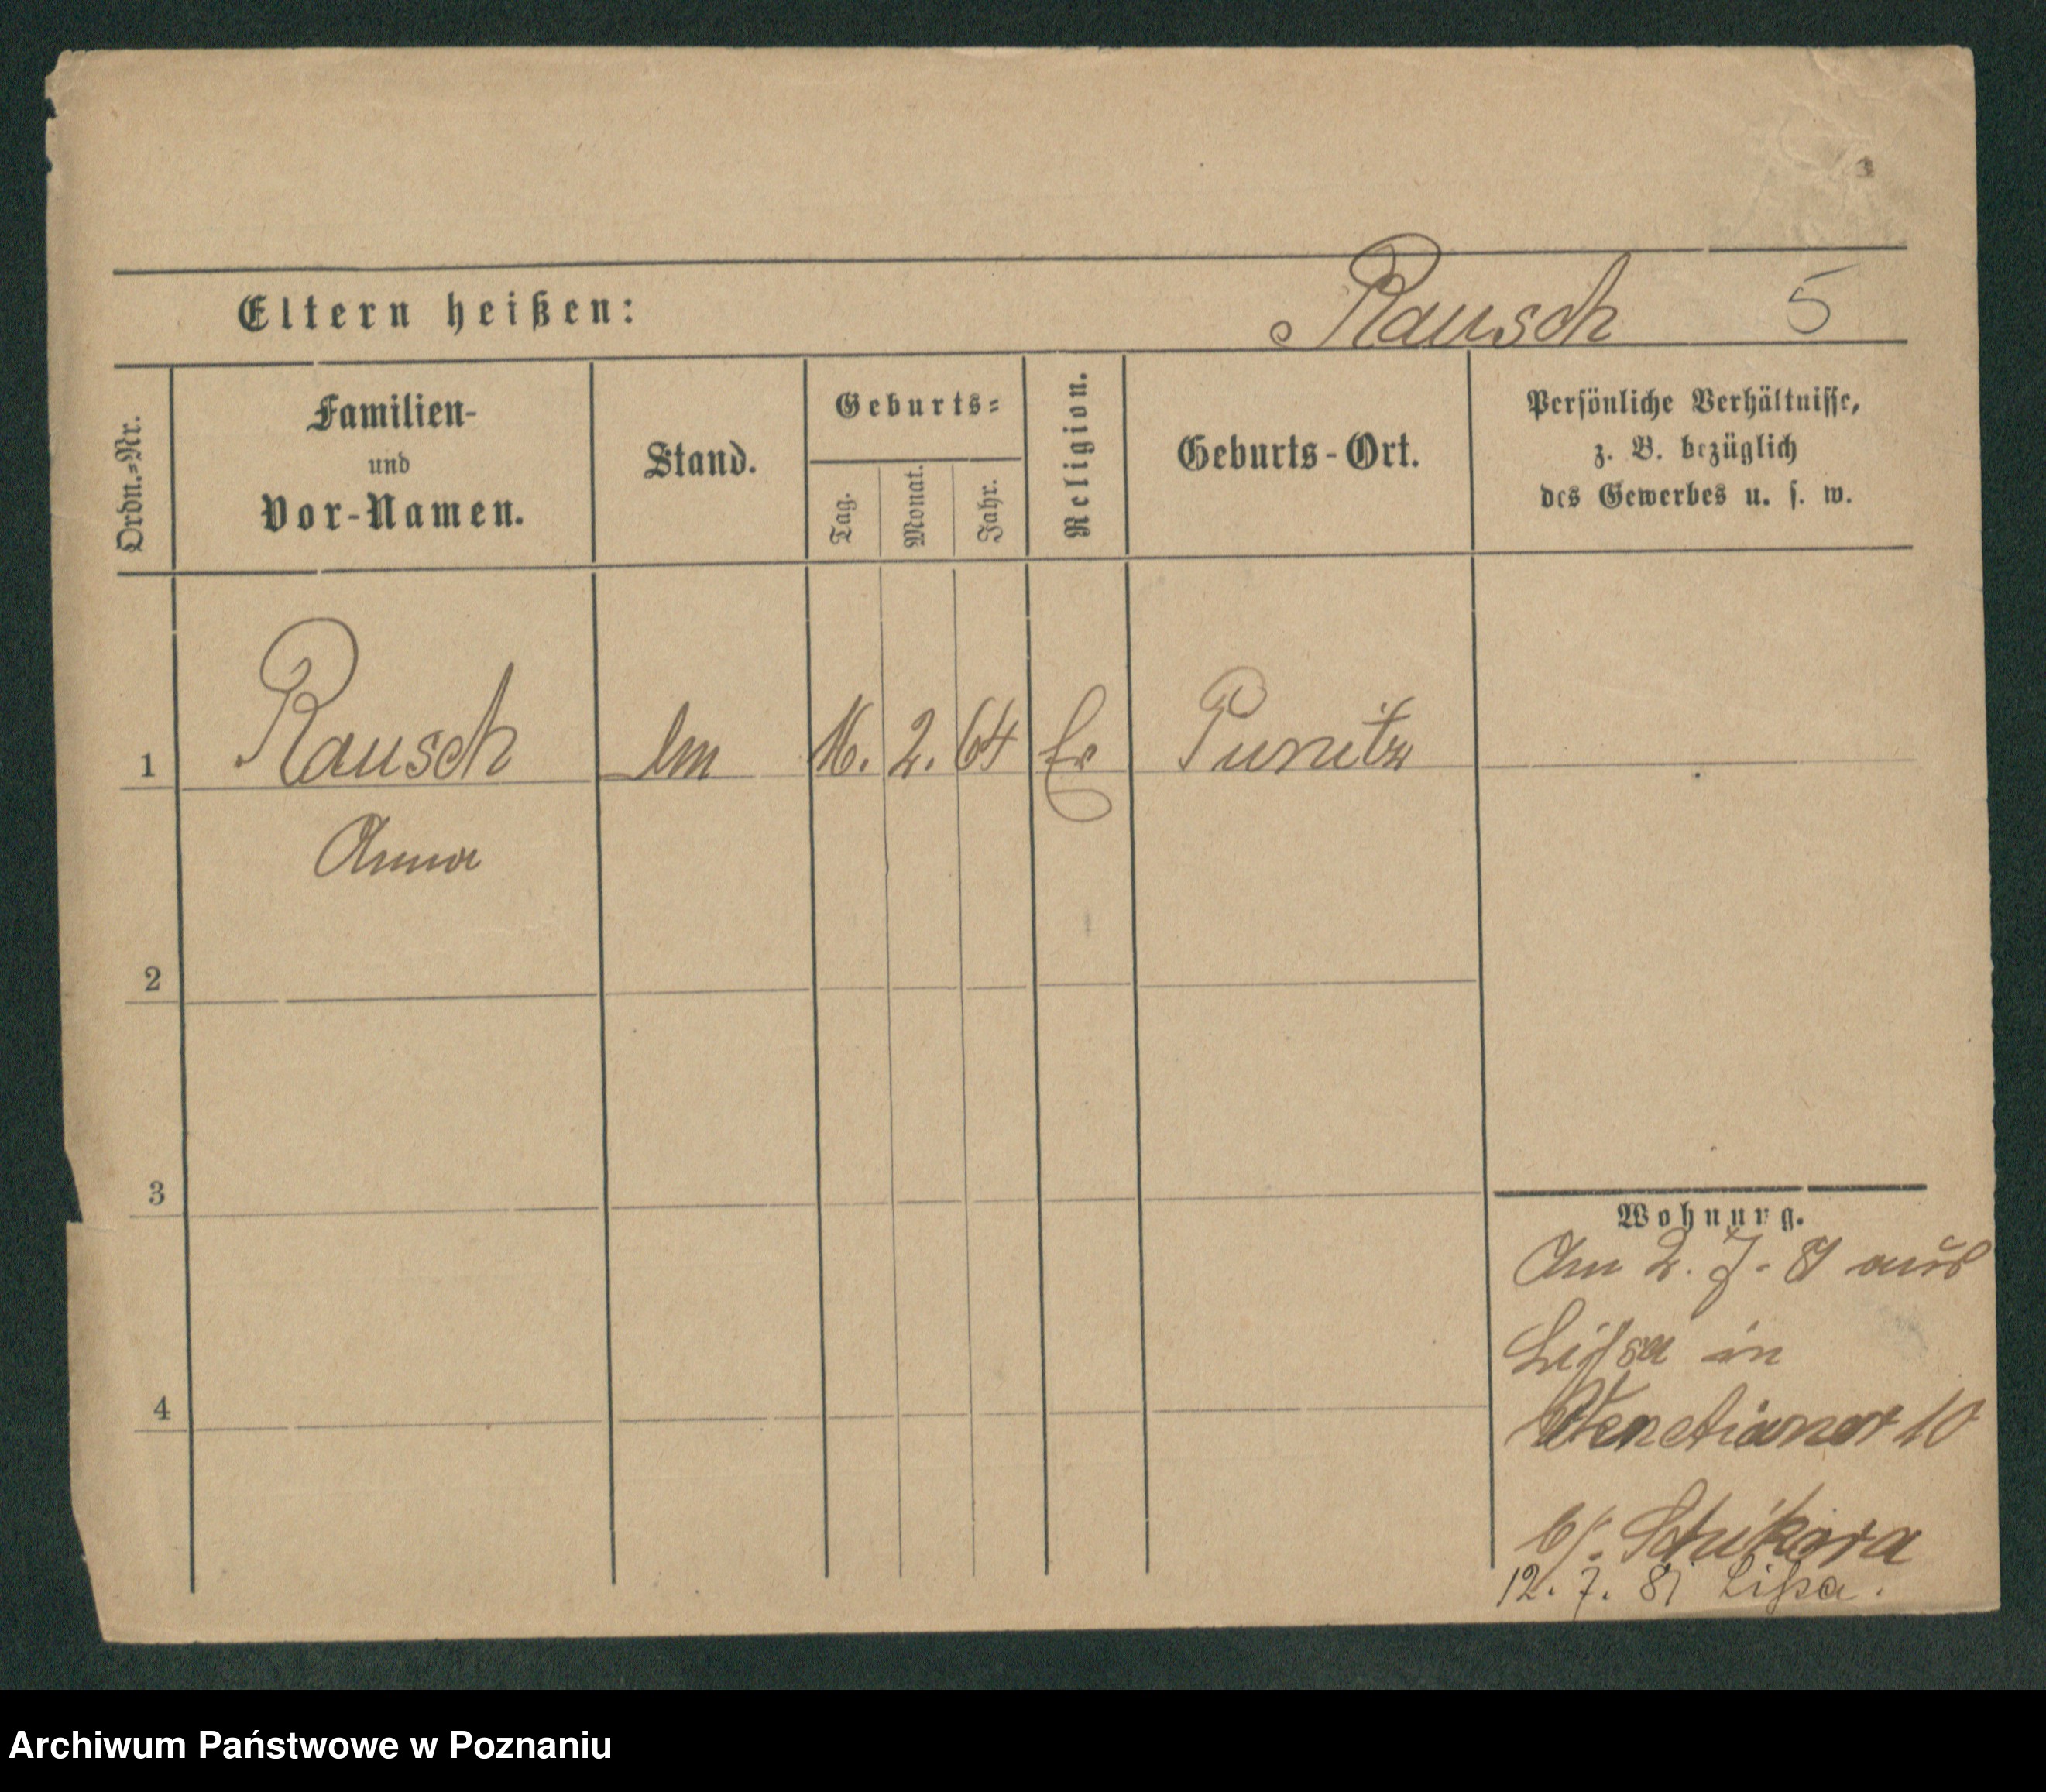 Eltern heißen:
Rausch 5
Ordn.=Nr.
Familien-
und
Vor-Namen.
Stand.
Geburts=
Tag.
Monat.
Jahr.
Religion.
Geburts-Ort.
Persönliche Verhältnisse,
z. B. bezüglich
des Gewerbes u. s. w.
1 Rausch 16. 2. 64 Ev Punitz
Anna
2
3
4
Wohnung.
Am 2. 7. 81 aus
Lissa in
Venetianer 10
b/.
12. 7. 81 Lissa.
Archiwum Państwowe w Poznaniu